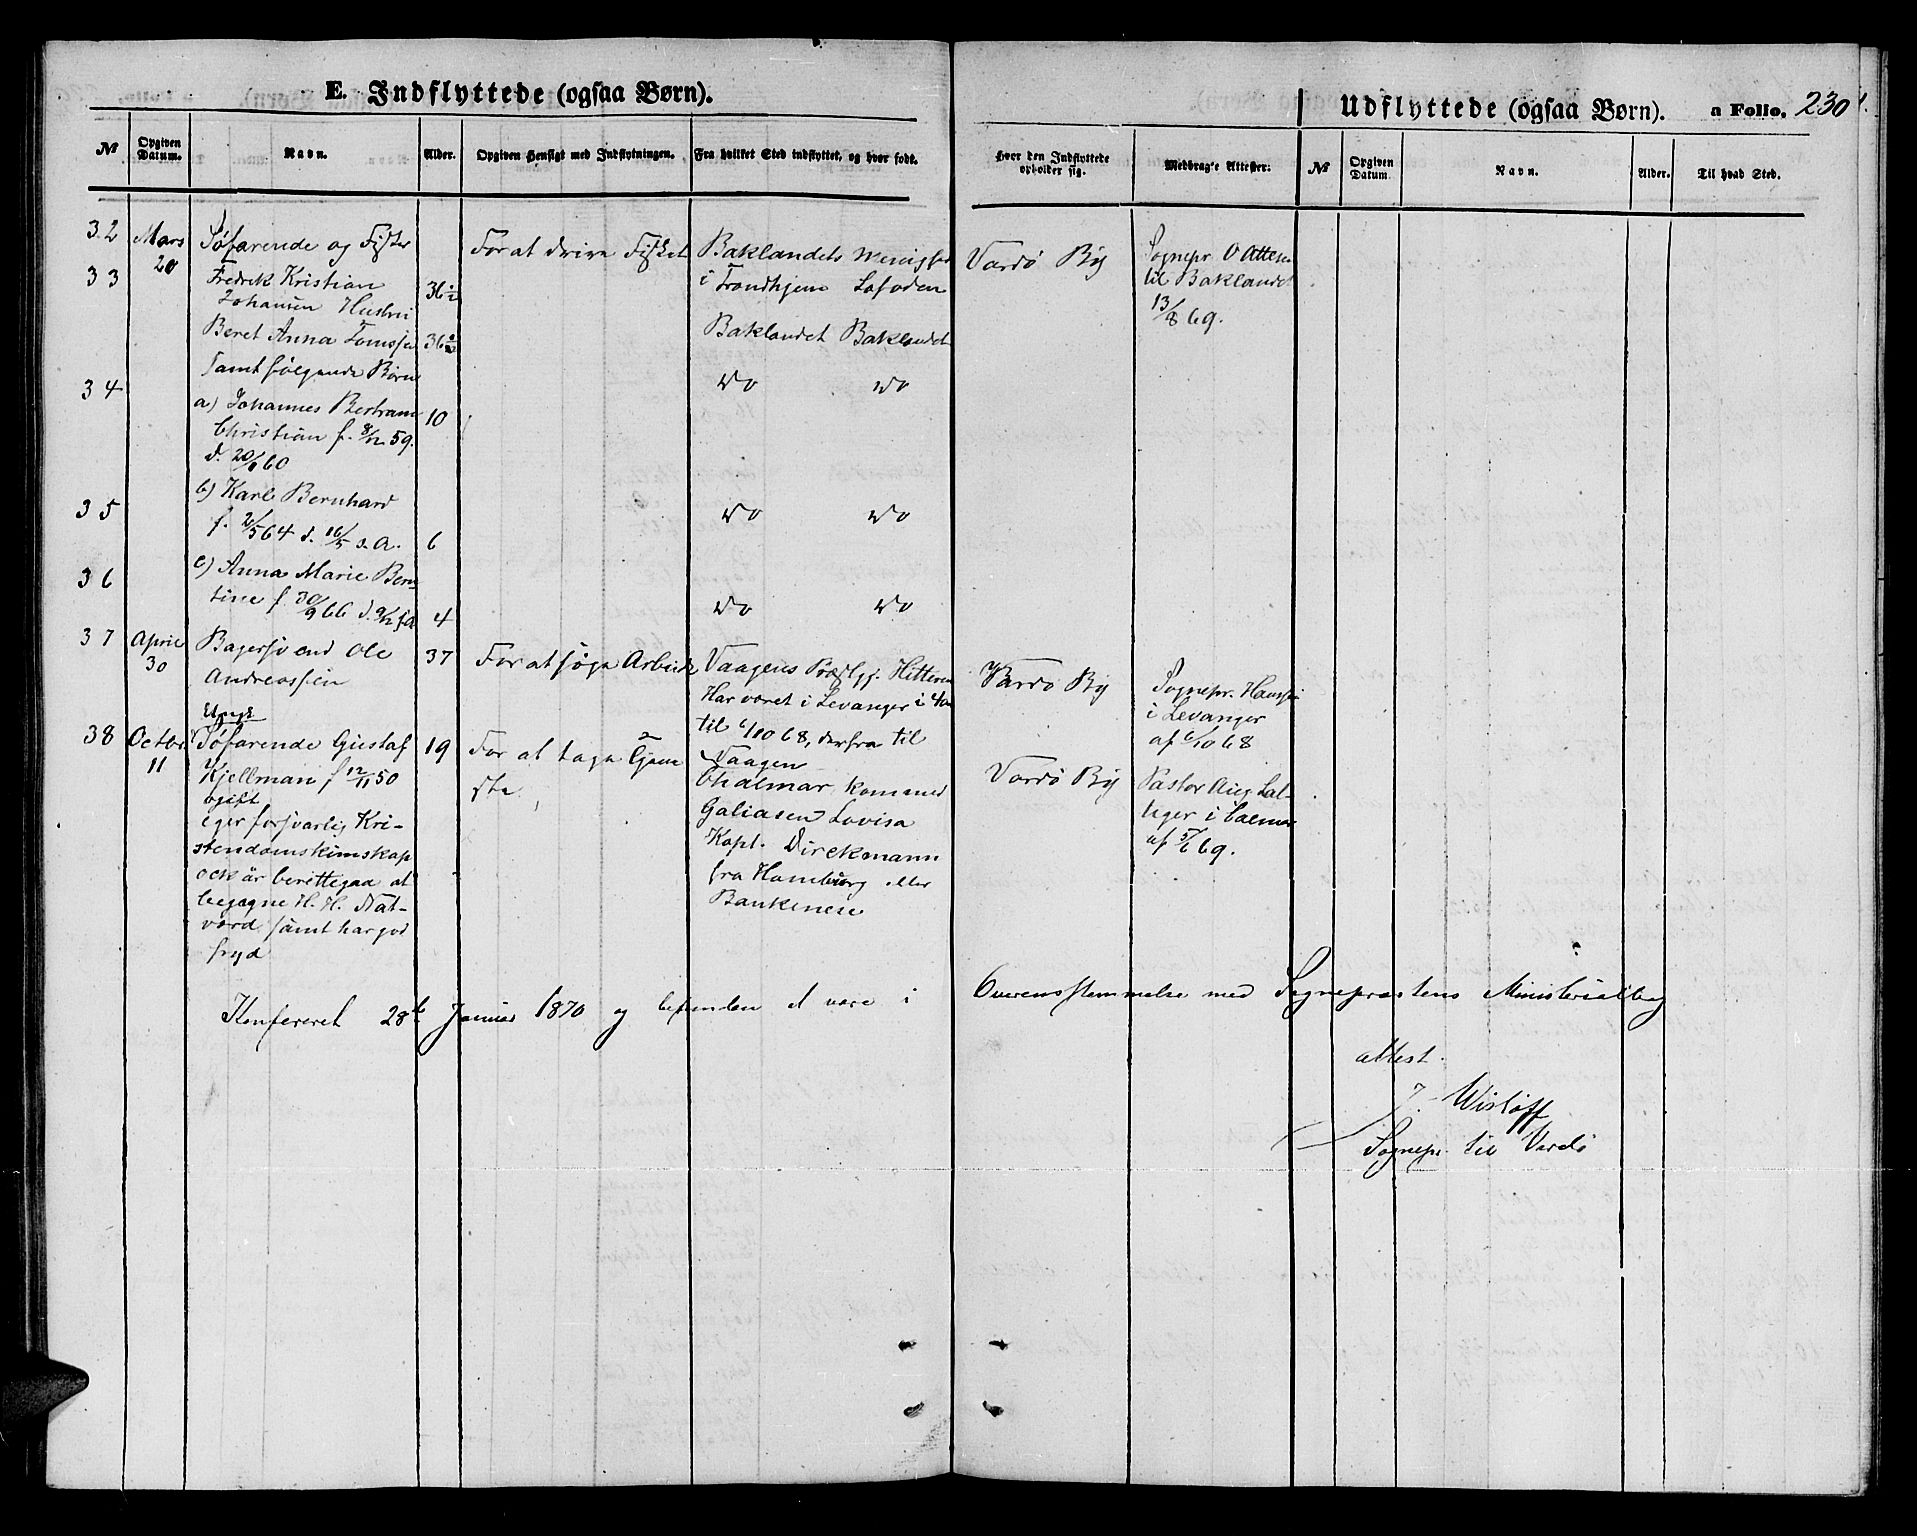 E. Indflyttede (ogsaa Børn).
Udflyttede (ogsaa Børn). a Folio. 230
№ Opgiven Datum. Navn. Alder. Opgiven Hensigt med Indflytningen. Fra hvilket Sted indflyttet, og hvor født.
Hvor den Indflyttede opholder sig. Medbragte Attester. № Opgiven Datum Navn. Alder. Til hvad Sted.
32 Mars 20 Søfarende og Fisker
33 Fredrik Kristian 36½
Johansen Hustru
For at drive Fisket
Baklandets Menighed
i Trondhjem Lofoden
Vardø By
Sognepr. O
til Baklandet
13/8 69.
Beret Anna 36
Baklandet Baklandet
samt følgende Børn
34 Do Do
a) Johannes Bertram 10
Christian f. 8/12 59.
d. 60
35 b) Karl Bernhard Do Do
f. 2/5 64 d. 16/5 s. A. 6
36 c) Anna Marie Bern-
tine f. 30/9 66 4
Do Do
37 April 30 Bagersvend Ole 37
Andreassen
Ungk
For at søge Arbeide
Vaagens Præstgj. Hitteren
Har været i Levanger i
til 6/10 68, derfra til
Vaagen
Vardø By
Sognepr.
i Levanger
af 6/10 68
38 Octbr 11 Søfarende Gustaf 19
Kjellman f 12/11 50
ogift
eger forsvarlig Kri-
stendomskunskap
ock är berettigad at
begagne H. H. Nat-
vard samt har god
fryd
For at tage Tjene
ste
kom med
Galiasen Lovisa
Kapt. Dirckmann
fra Hamburg eller
Bankenese
Vardø By
Pastor Aug
i Calmar
af 5/6 69.
Konfereret 28de Januar 1870 og befunden at være i Overensstemmelse med Sognepræstens Ministerialbog
attest.
J. Wisløff
Sognepr. til Vardø